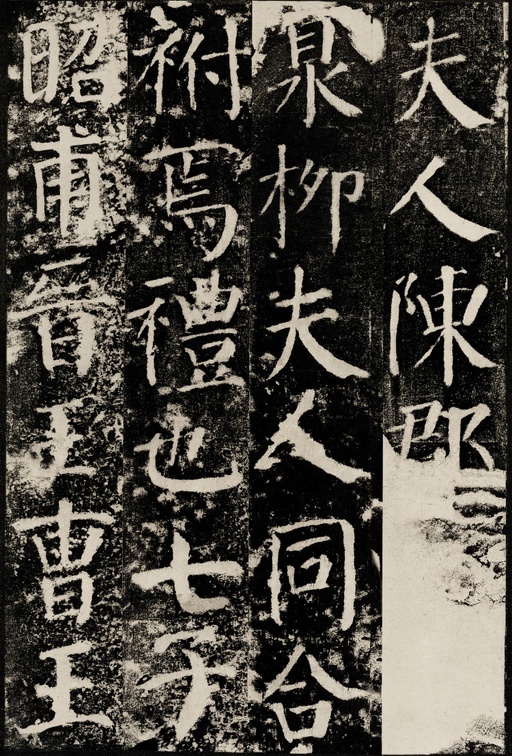 夫人陳郡
泉柳夫人同合
祔焉禮也七子
昭甫晉王曹王